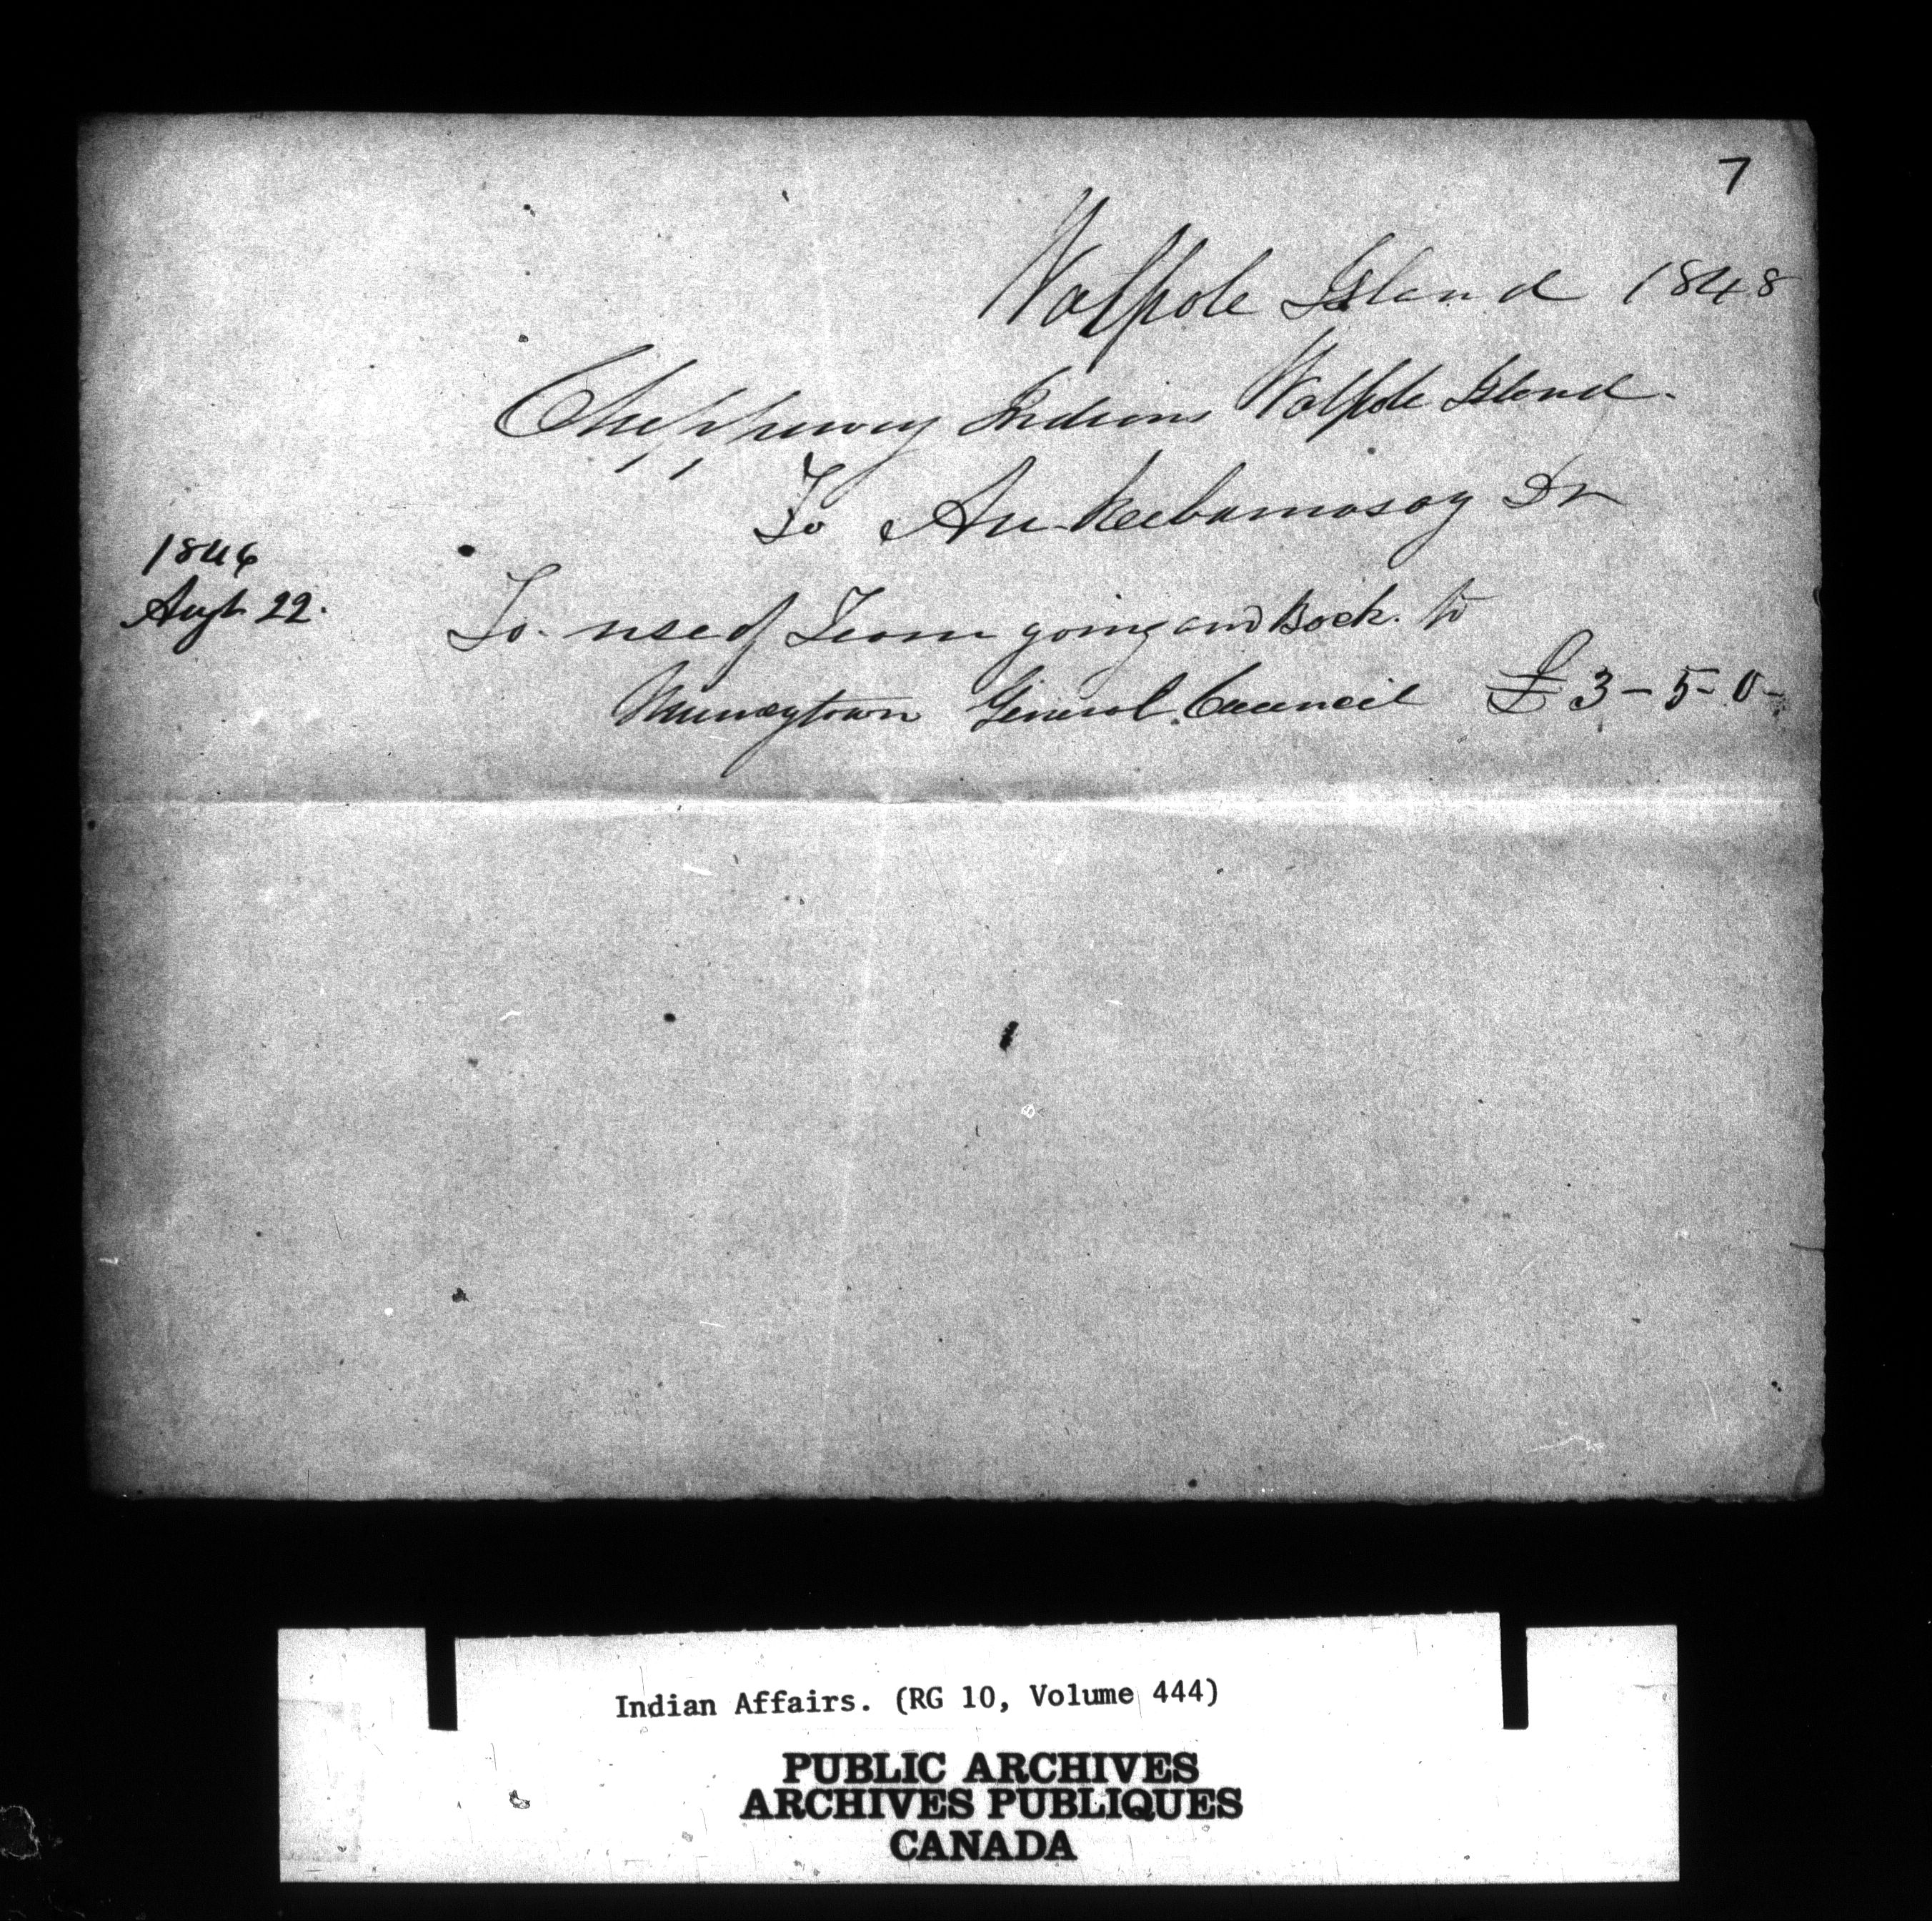 7
Walpole Island 1848
Chippewey Indians Walpole Island.
To Au-keebamosay Dr
1846
Augt 22.
To use of Team going and Back to
Munseytown General Council £3-5-0-
Indian Affairs. (RG 10, Volume 444)
PUBLIC ARCHIVES
ARCHIVES PUBLIQUES
CANADA